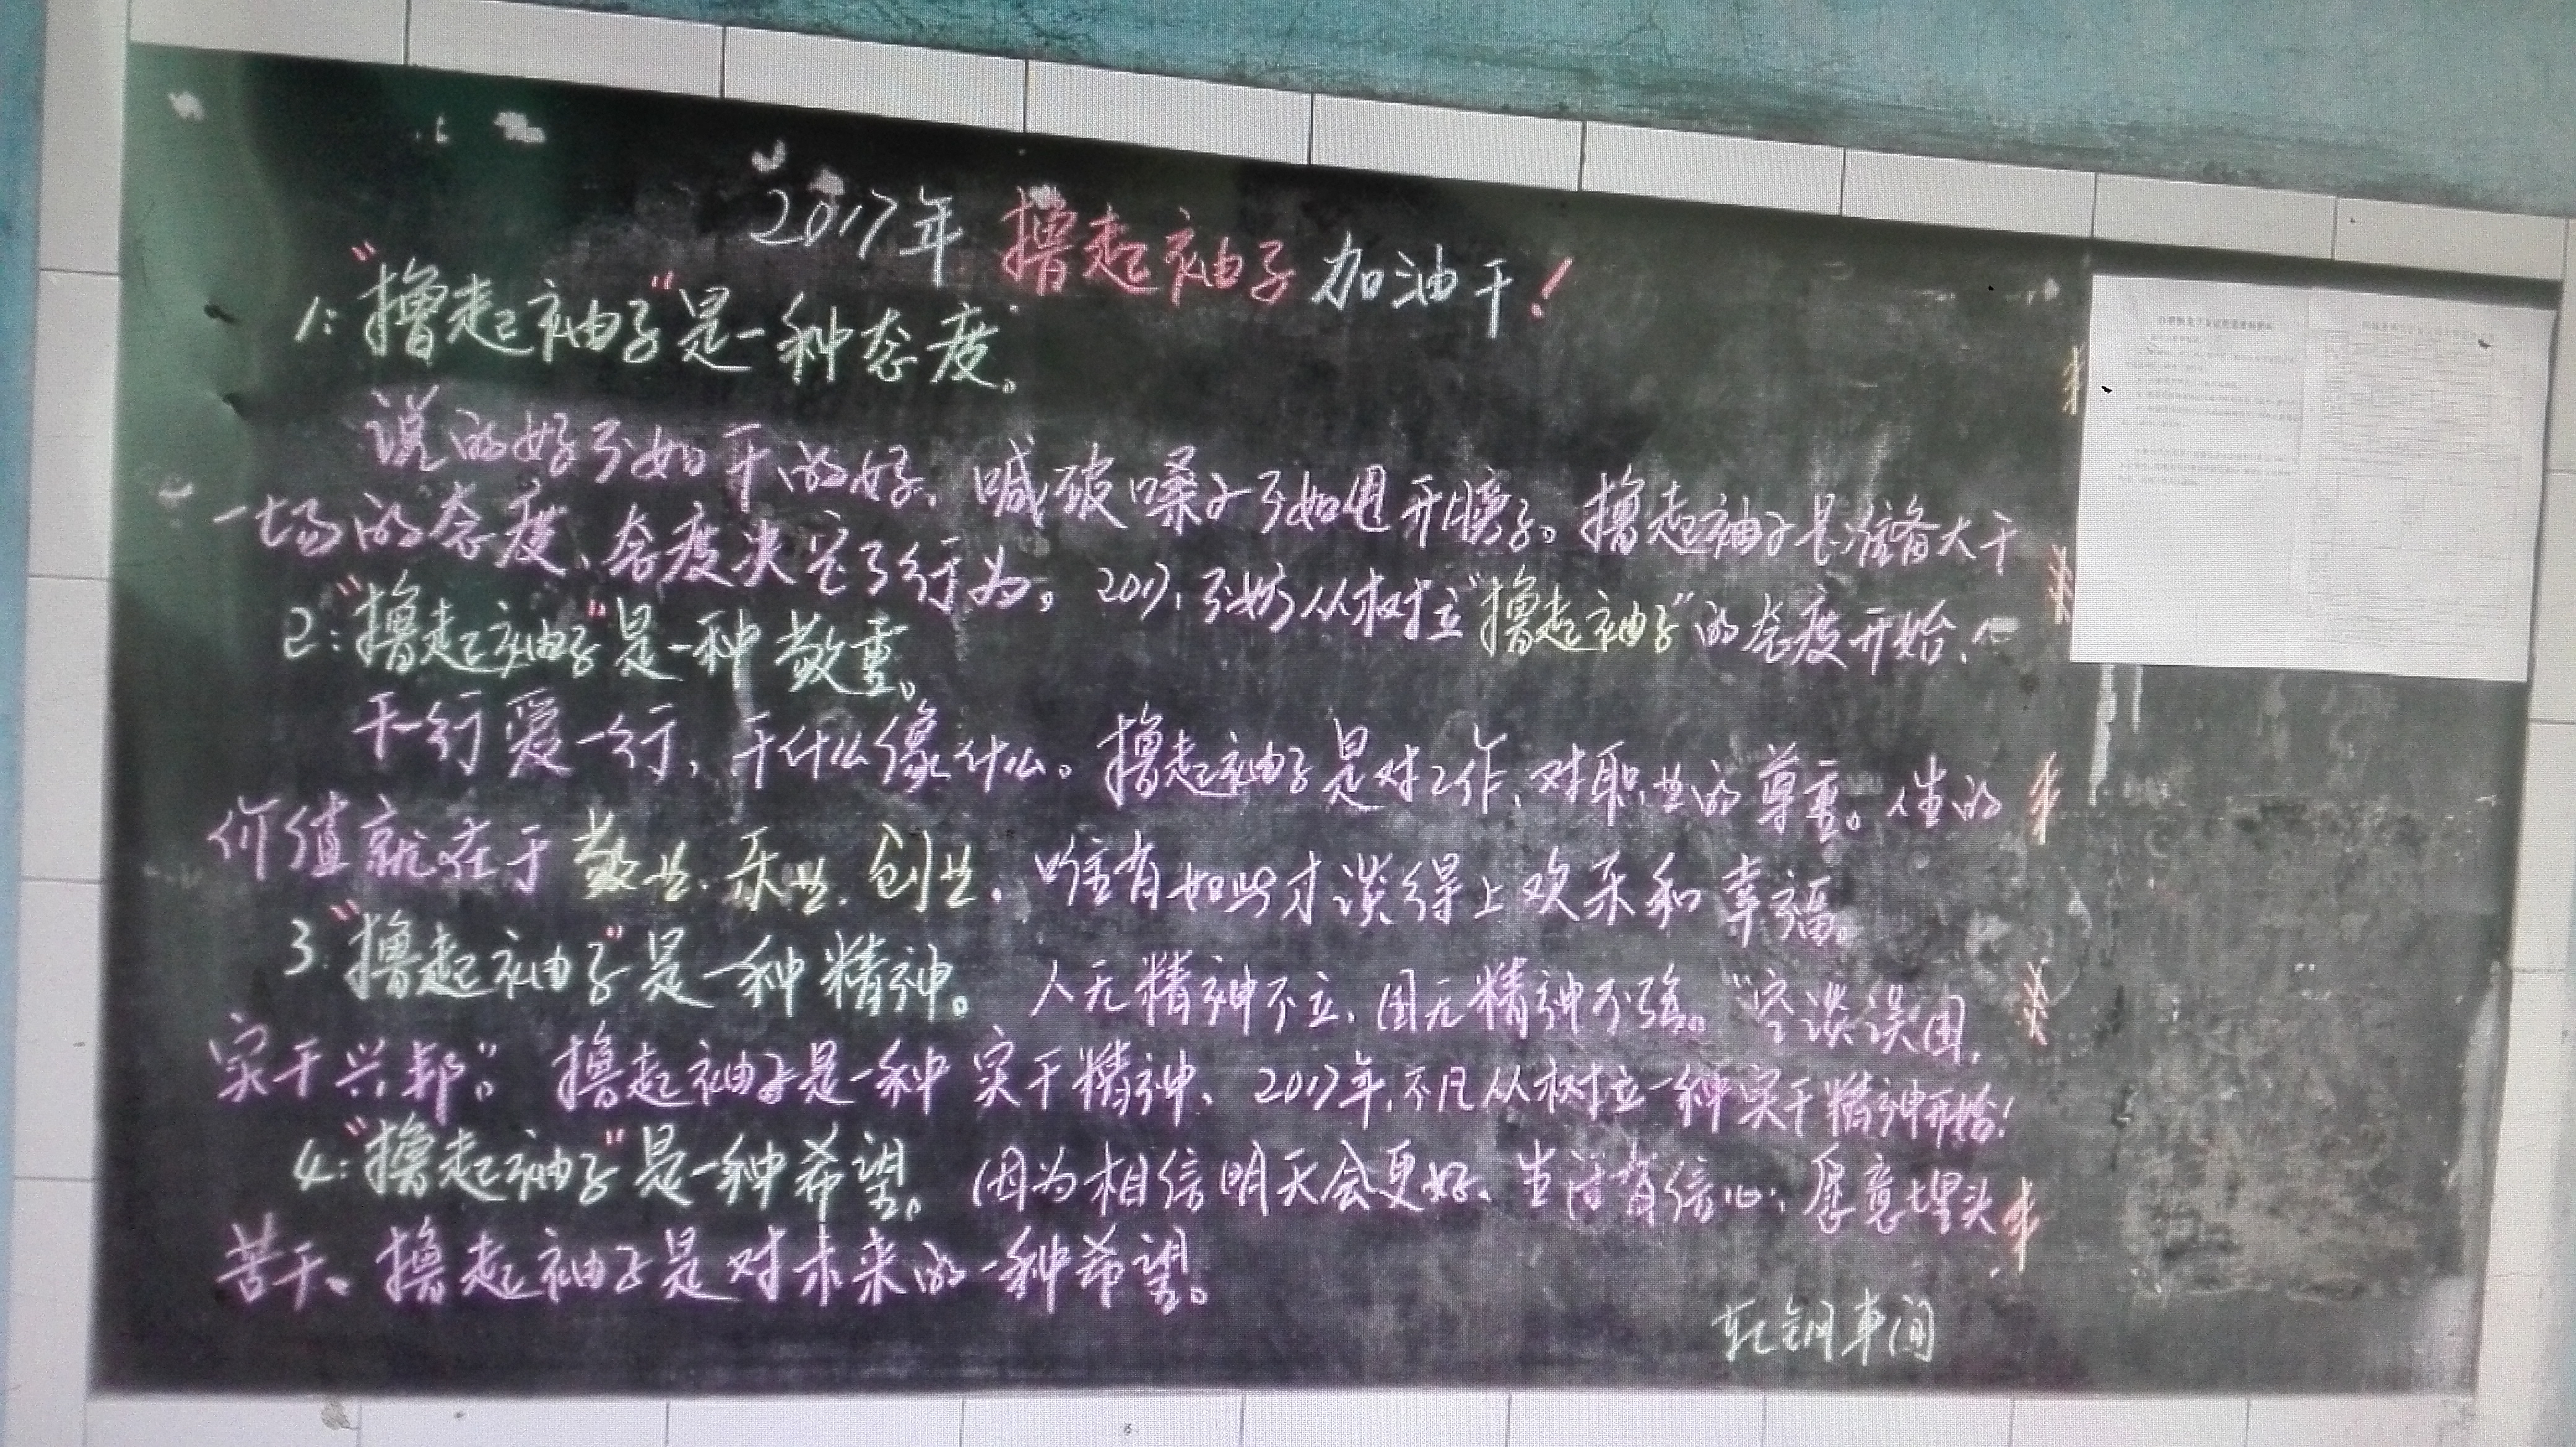 2017年 撸起袖子 加油干！
1："撸起袖子"是一种态度。
说的好不如干的好，喊破嗓子不如甩开膀子。撸起袖子是准备大干
一场的态度、态度决定了行为。2017，不妨从树立"撸起袖子"的态度开始，
2："撸起袖子"是一种敬重。
干一行爱一行，干什么像什么。撸起袖子是对工作、对职业的尊重。人生的
价值就在于敬业、乐业、创业，唯有如此才谈得上欢乐和幸福。
3："撸起袖子"是一种精神。人无精神不立，国无精神不强。"空谈误国，
实干兴邦"。撸起袖子是一种实干精神、2017年，不凡从树立一种实干精神开始！
4："撸起袖子"是一种希望。因为相信明天会更好、生活有信心，愿意埋头
苦干、撸起袖子是对未来的一种希望。
轧钢车间